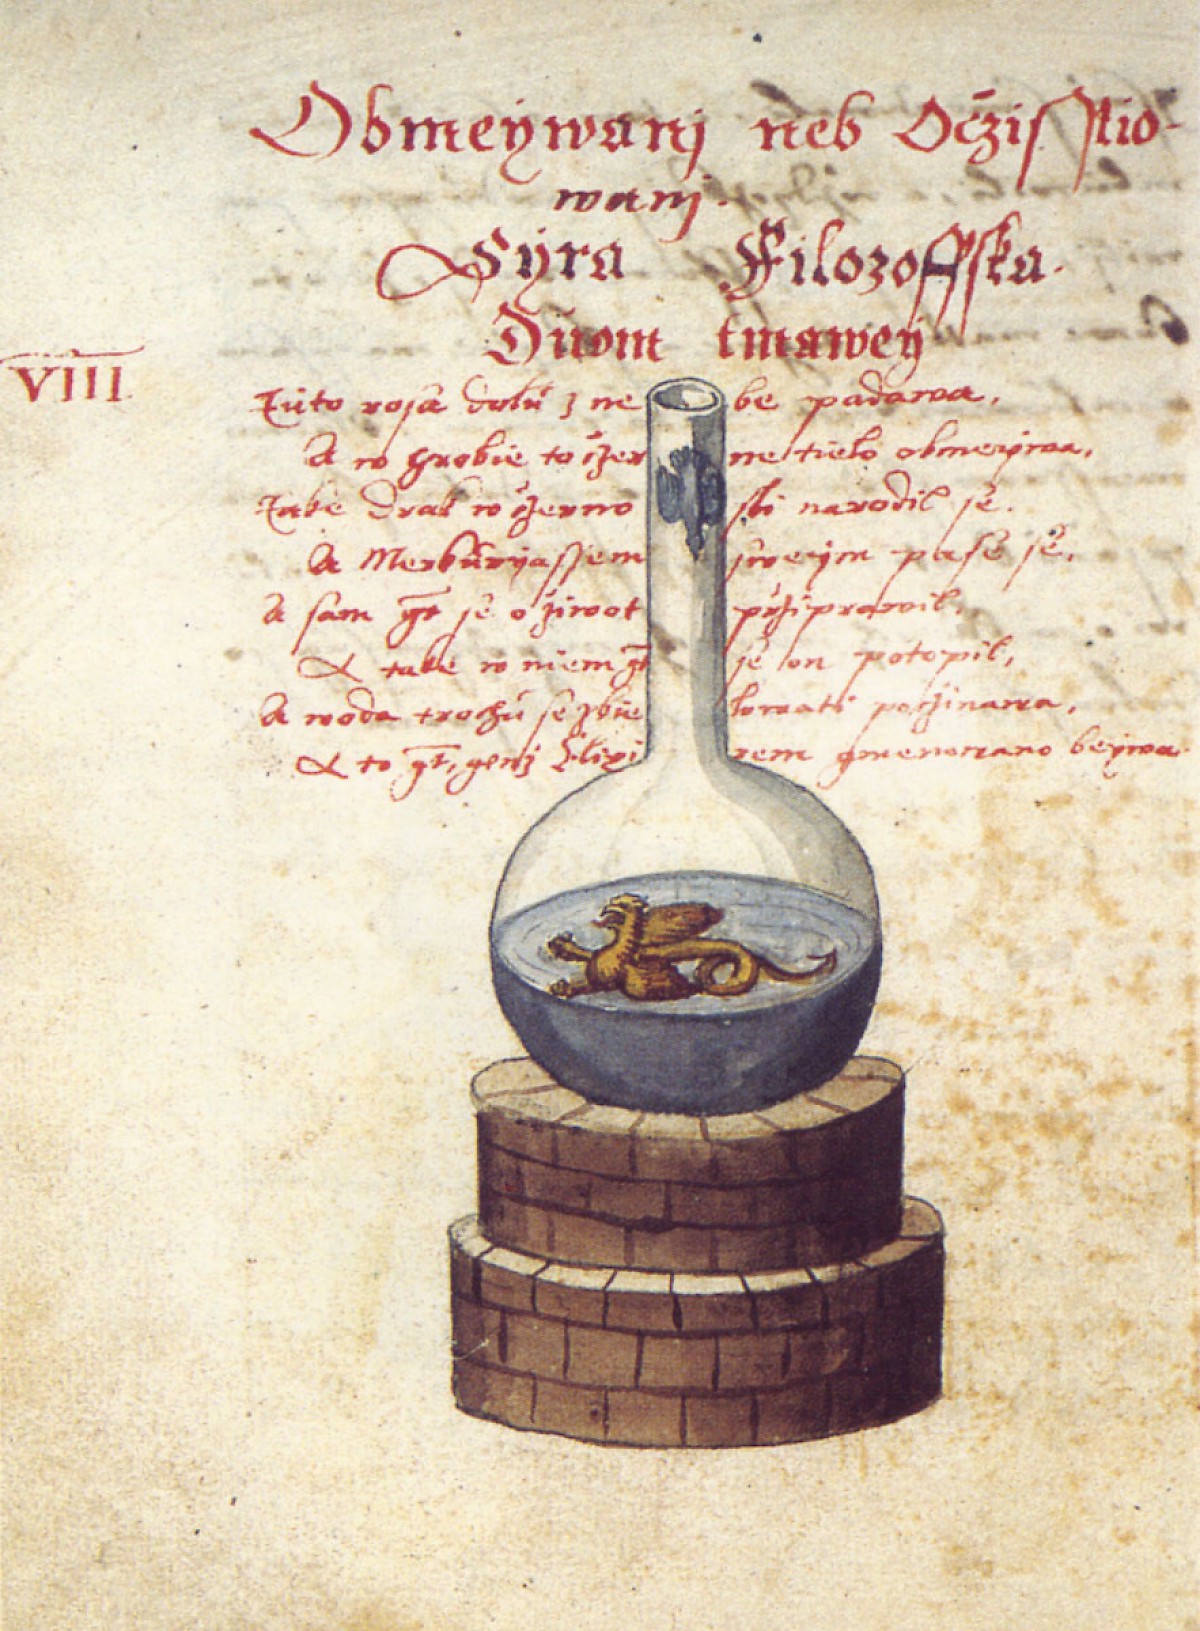 Obmeywanj neb Oczisstio-
wanj.
Syra Filozoffska.
Duom tmawey
VIII.
Tuto rosa dolu z nebe padawa,
A w hrobie to czerne tielo obmeywa,
Take Drak w czernosti narodil se.
A Merkuryassem sweym pase se,
A sam gt se o ziwot prziprawil,
A take w niem gt se on potopil,
A woda trochu se zbielowati poczinawa,
A to gt, genz Elixirem gmenowano beywa.